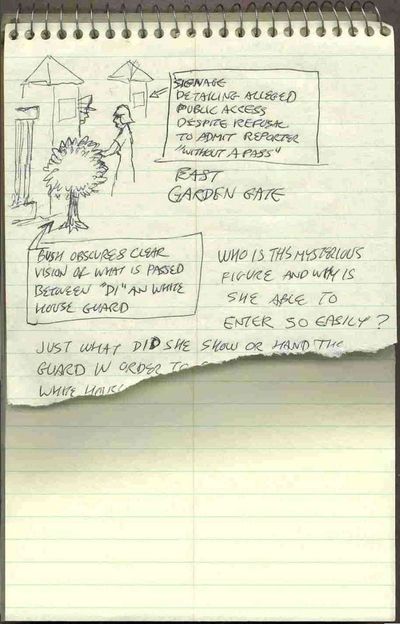 SIGNAGE
DETAILING ALLEGED
PUBLIC ACCESS
DESPITE REFUSAL
TO ADMIT REPORTER
"WITHOUT A PASS"
EAST
GARDEN GATE
BUSH OBSCURES CLEAR
VISION OF WHAT IS PASSED
BETWEEN "DI" AN WHITE
HOUSE GUARD
WHO IS THIS MYSTERIOUS
FIGURE AND WHY IS
SHE ABLE TO
ENTER SO EASILY?
JUST WHAT DID SHE SHOW OR HAND THE
GUARD IN ORDER TO
WHITE